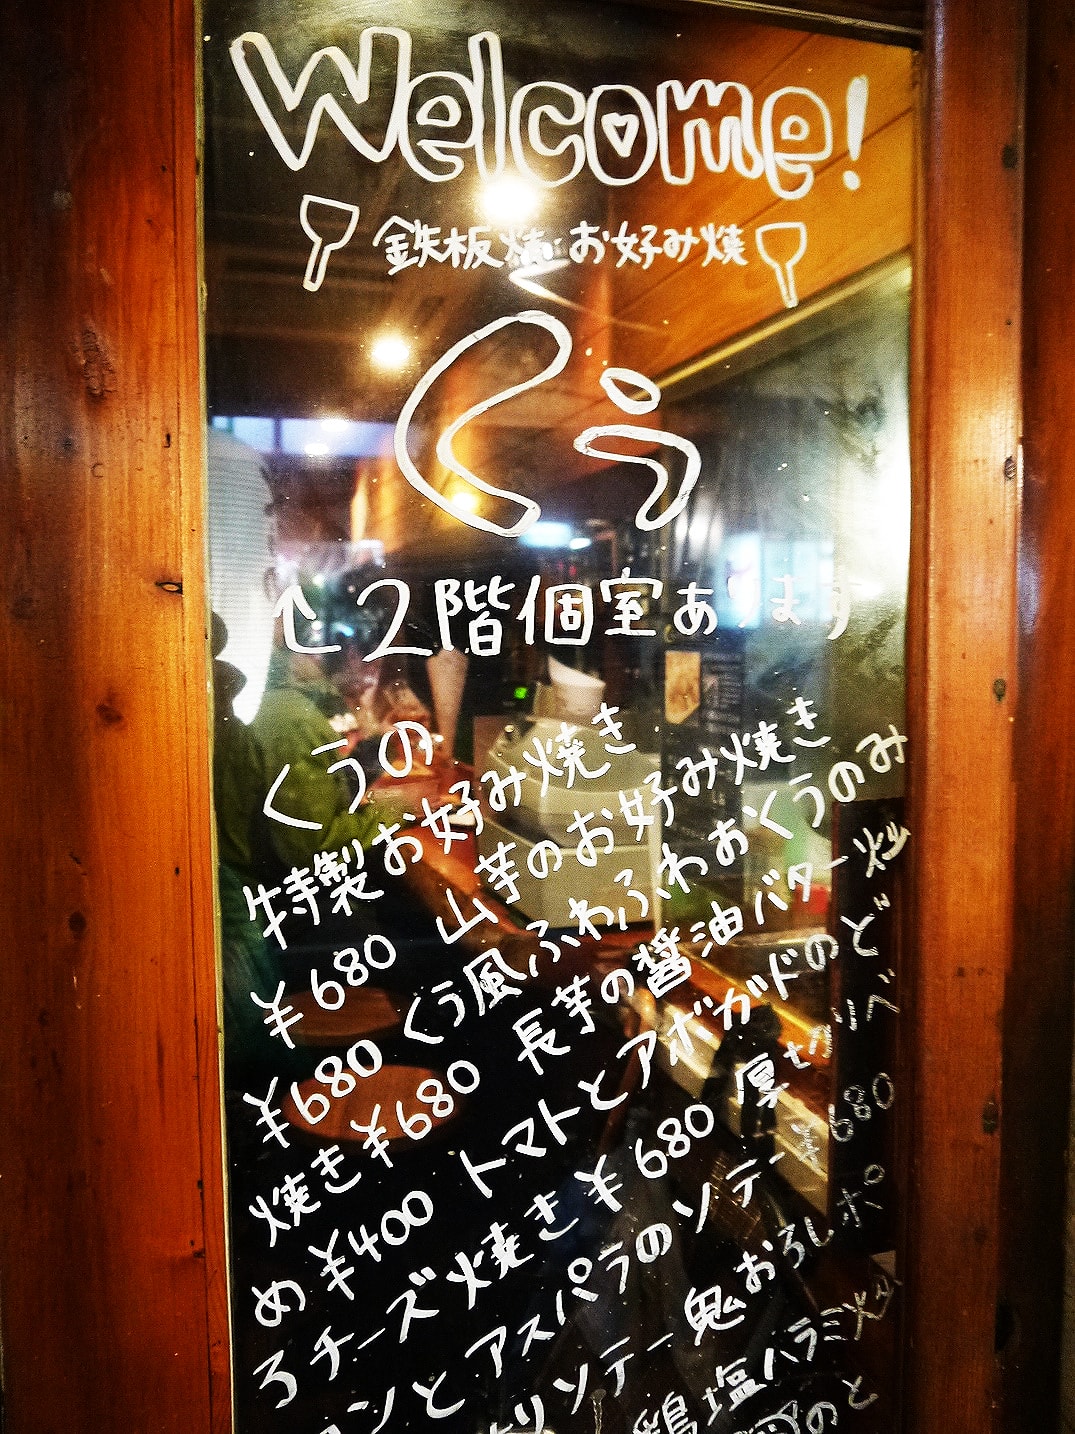 Welcome!
鉄板焼 お好み焼
くう
2階個室あります
くうの
特製お好み焼き
¥680 山芋のお好み焼き
¥680 くう風ふわふわおくうのみ
焼き¥680 長芋の醤油バター炒
め¥400 トマトとアボガドのと
ろチーズ焼き¥680 厚
コンとアスパラのソテー 680
リソテー鬼おろしポ
鶏塩ハラミ
のと